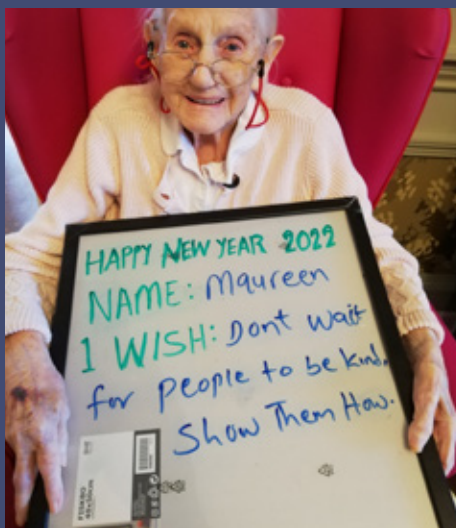 HAPPY NEW YEAR 2022
NAME: Maureen
1 WISH: Dont wait
for people to be kind.
Show Them How.
FISKBO